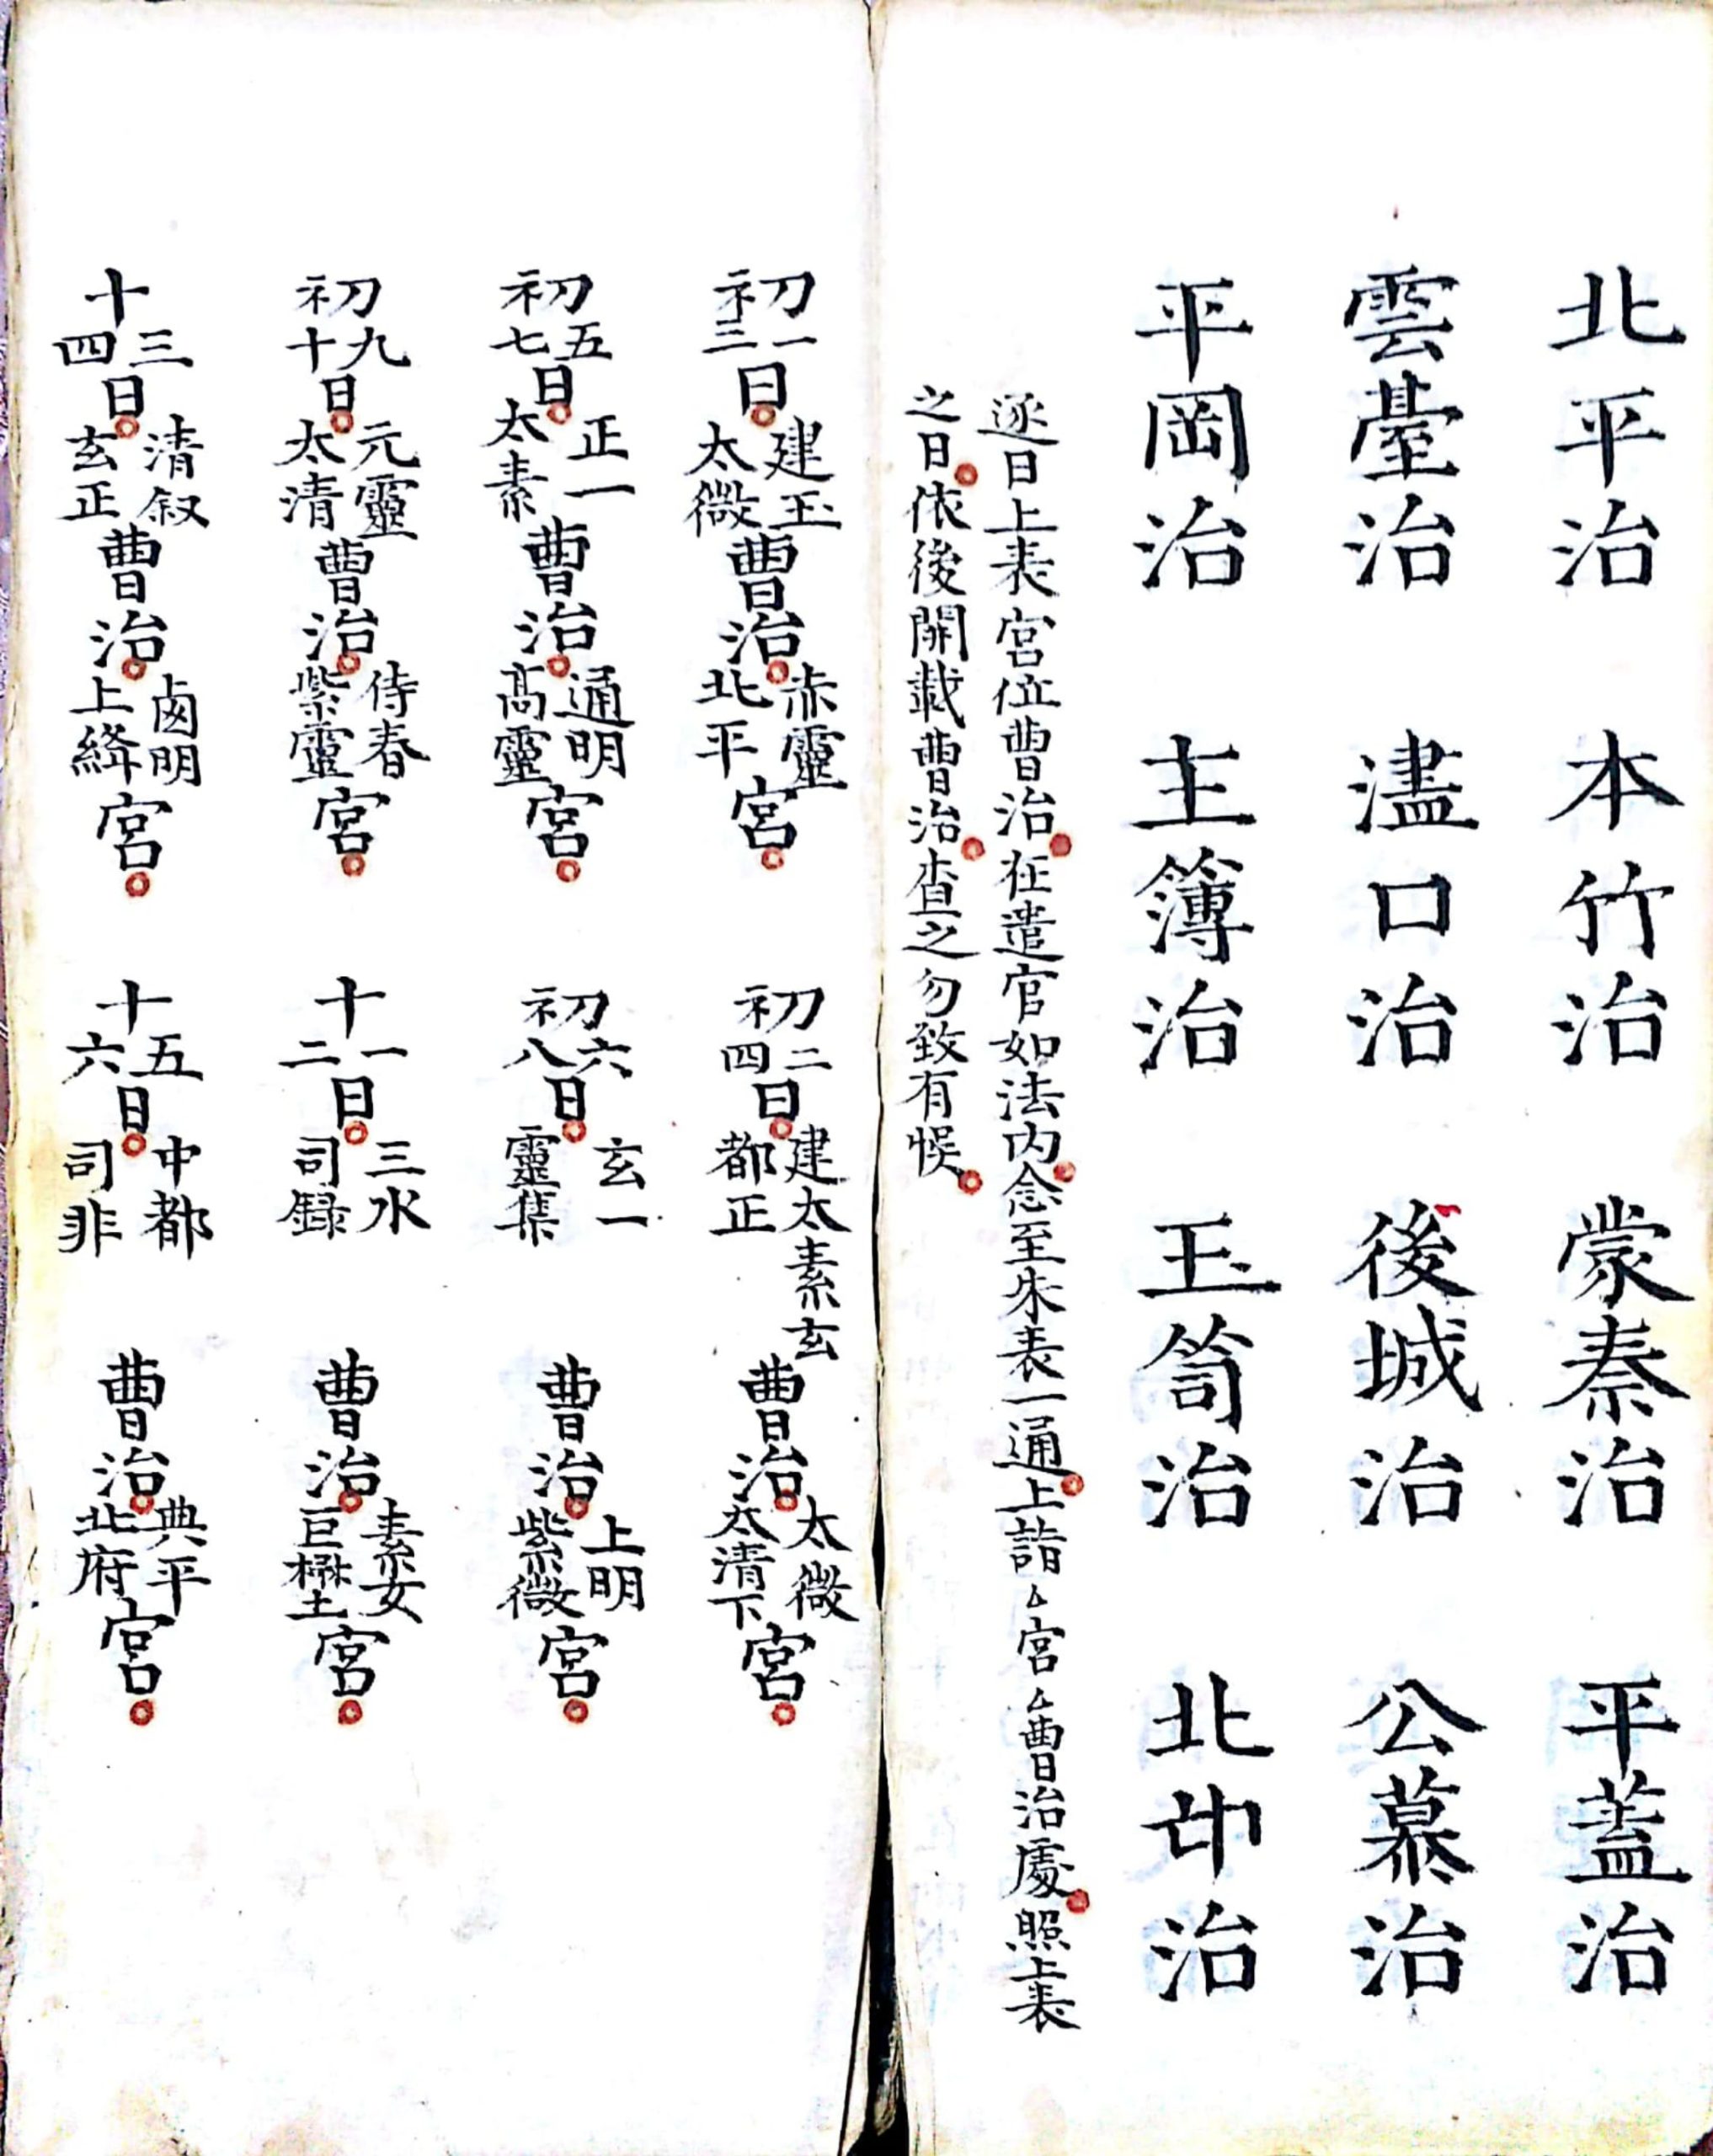 北平治 本竹治 蒙秦治 平蓋治
雲臺治 濜口治 後城治 公慕治
平岡治 主簿治 玉笥治 北邙治
逐日上表宮位曹治在遣官如法內念至朱表一通上詣厶宮厶曹治處照上表
之日依後開載曹治查之勿致有悮
初一三日建玉太微曹治赤靈北平宮 初二四日建太素玄都正曹治太微太清下宮
初五七日正一太素曹治通明高靈宮 初六八日玄一靈集曹治上明紫微宮
初九十日元靈太清曹治侍春紫靈宮 十一二日三水司録曹治素女巨宮
十三四日清叙玄正曹治鹵明上絳宮 十五六日中都司非曹治典平北府宮